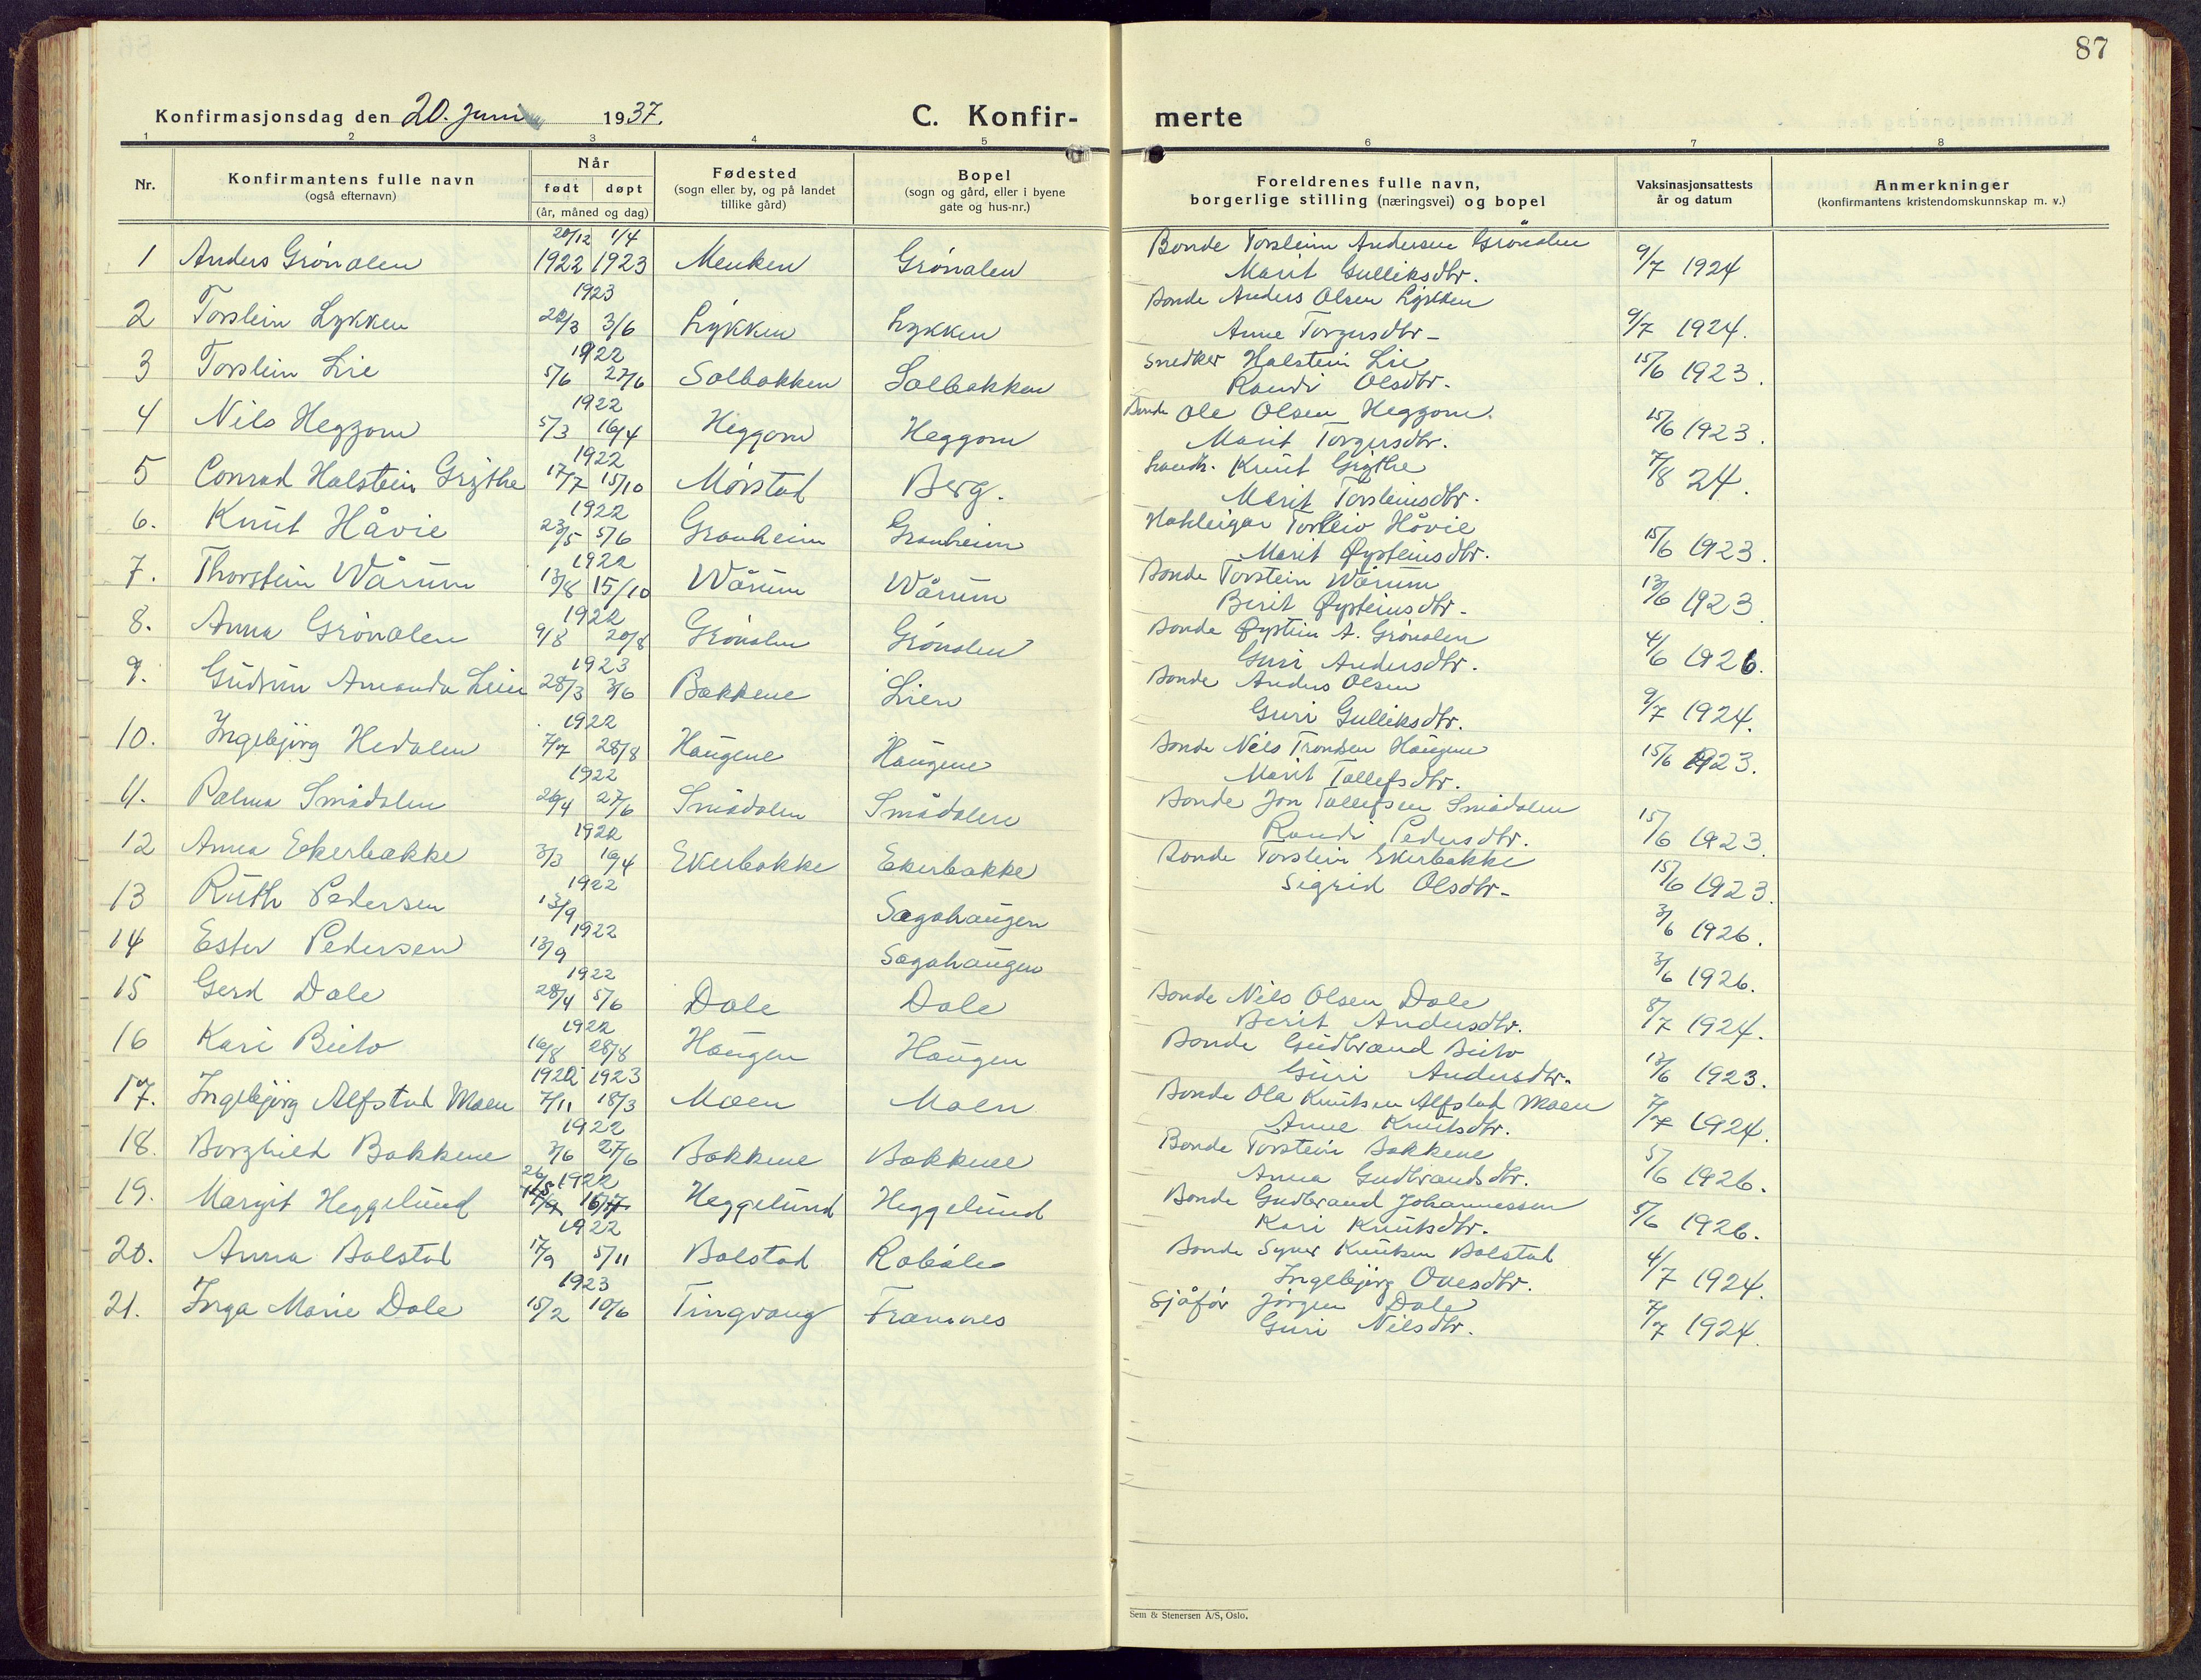 87
Konfirmasjonsdag den 20. juni 1937.
C. Konfir-
merte
1 2 3 4 5 6 7 8
Nr.
Konfirmantens fulle navn
(også efternavn)
Når
født døpt
(år, måned og dag)
Fødested
(sogn eller by, og på landet
tillike gård)
Bopel
(sogn og gård, eller i byene
gate og hus-nr.)
Foreldrenes fulle navn,
borgerlige stilling (næringsvei) og bopel
Vaksinasjonsattests
år og datum
Anmerkninger
(konfirmantens kristendomskunnskap m. v.)
20/12 1/4 Bonde Torstein Andersen Grönolen
1 Anders Grönolen 1922 1923 Menken Grönolen Marit Gulliksdtr. 9/7 1924
1923 Bonde Anders Olsen Lykken
2 Torstein Lykken 22/3 3/6 Lykken Lykken Anne Torgersdtr- 9/7 1924.
1922 Snedker Halstein Lie
3 Torstein Lie 5/6 27/6 Solbakken Solbakken Randi Olsdtr. 15/6 1923.
1922 Bonde Ole Olsen Heggom.
4 Nils Heggom 5/3 16/4 Heggom Heggom Marit Torgersdtr. 15/6 1923.
1922 Knut Grythe
5 Conrad Halstein Grythe 17/7 15/10 Mörstad Berg. Marit Torsteinsdtr. 7/8 24.
1922 Torleiv Håvie
6. Knut Håvie 23/5 5/6 Granheim Granheim Marit Øysteinsdtr. 15/6 1923.
1922 Bonde Torstein Wårum
7. Thorstein Wårum 13/8 15/10 Wårum Wårum Berit Øysteinsdtr. 13/6 1923
1922 Bonde Øystein A. Grönolen
8. Anna Grönolen 9/8 20/8 Grönolen Grönolen Guri Andersdtr. 4/6 1926.
1923 Bonde Anders Olsen
9. Gudrun Amanda Lien 28/3 3/6 Bakkene Lien Guri Gulliksdtr. 9/7 1924.
1922 Bonde Nils Trondsen Haugene
10. Ingebjörg Hedalen 7/7 28/8 Haugene Haugene Marit Tollefsdtr. 15/6 1923.
1922 Bonde Jon Tollefsen Smådalen
11. Palma Smådalen 26/4 27/6 Smådalen Smådalen Randi Pedersdtr. 15/6 1923.
1922 Bonde Torstein Ekerbakke
12 Anna Ekerbakke 3/3 16/4 Ekerbakke Ekerbakke Sigrid Olsdtr- 15/6 1923.
1922
13 Ruth Pedersen 13/9 Sagahaugen 3/6 1926.
1922
14 Ester Pedersen 13/9 Sagahaugen 3/6 1926.
1922 Bonde Nils Olsen Dale
15 Gerd Dale 28/4 5/6 Dale Dale Berit Andersdtr. 8/7 1924.
1922 Bonde Gudbrand Beito
16 Kari Beito 16/8 28/8 Haugen Haugen Guri Andersdtr. 13/6 1923.
1922 1923 Bonde Ola Knutsen Alfstad Moen
17. Ingebjörg Alfstad Moen 7/11 18/3 Moen Moen Anne Knutsdtr. 7/7 1924.
1922 Bonde Torstein Bakkene
18. Borghild Bakkene 3/6 27/6 Bakkene Bakkene Anna Gudbrandsdtr. 5/6 1926.
1922 Bonde Gudbrand Johannessen
19. Margit Heggelund Heggelund Heggelund Kari Knutsdtr. 5/6 1926.
1922 Bonde Syver Knutsen Bolstad
20. Anna Bolstad 17/9 5/11 Bolstad Roböle Ingebjörg Ovesdtr. 4/7 1924.
1923 Sjåför Jörgen Dale
21. Inga Marie Dale 15/2 10/6 Tingvang Framnes Guri Nilsdtr. 7/7 1924.
Sem & Stenersen A/S, Oslo.